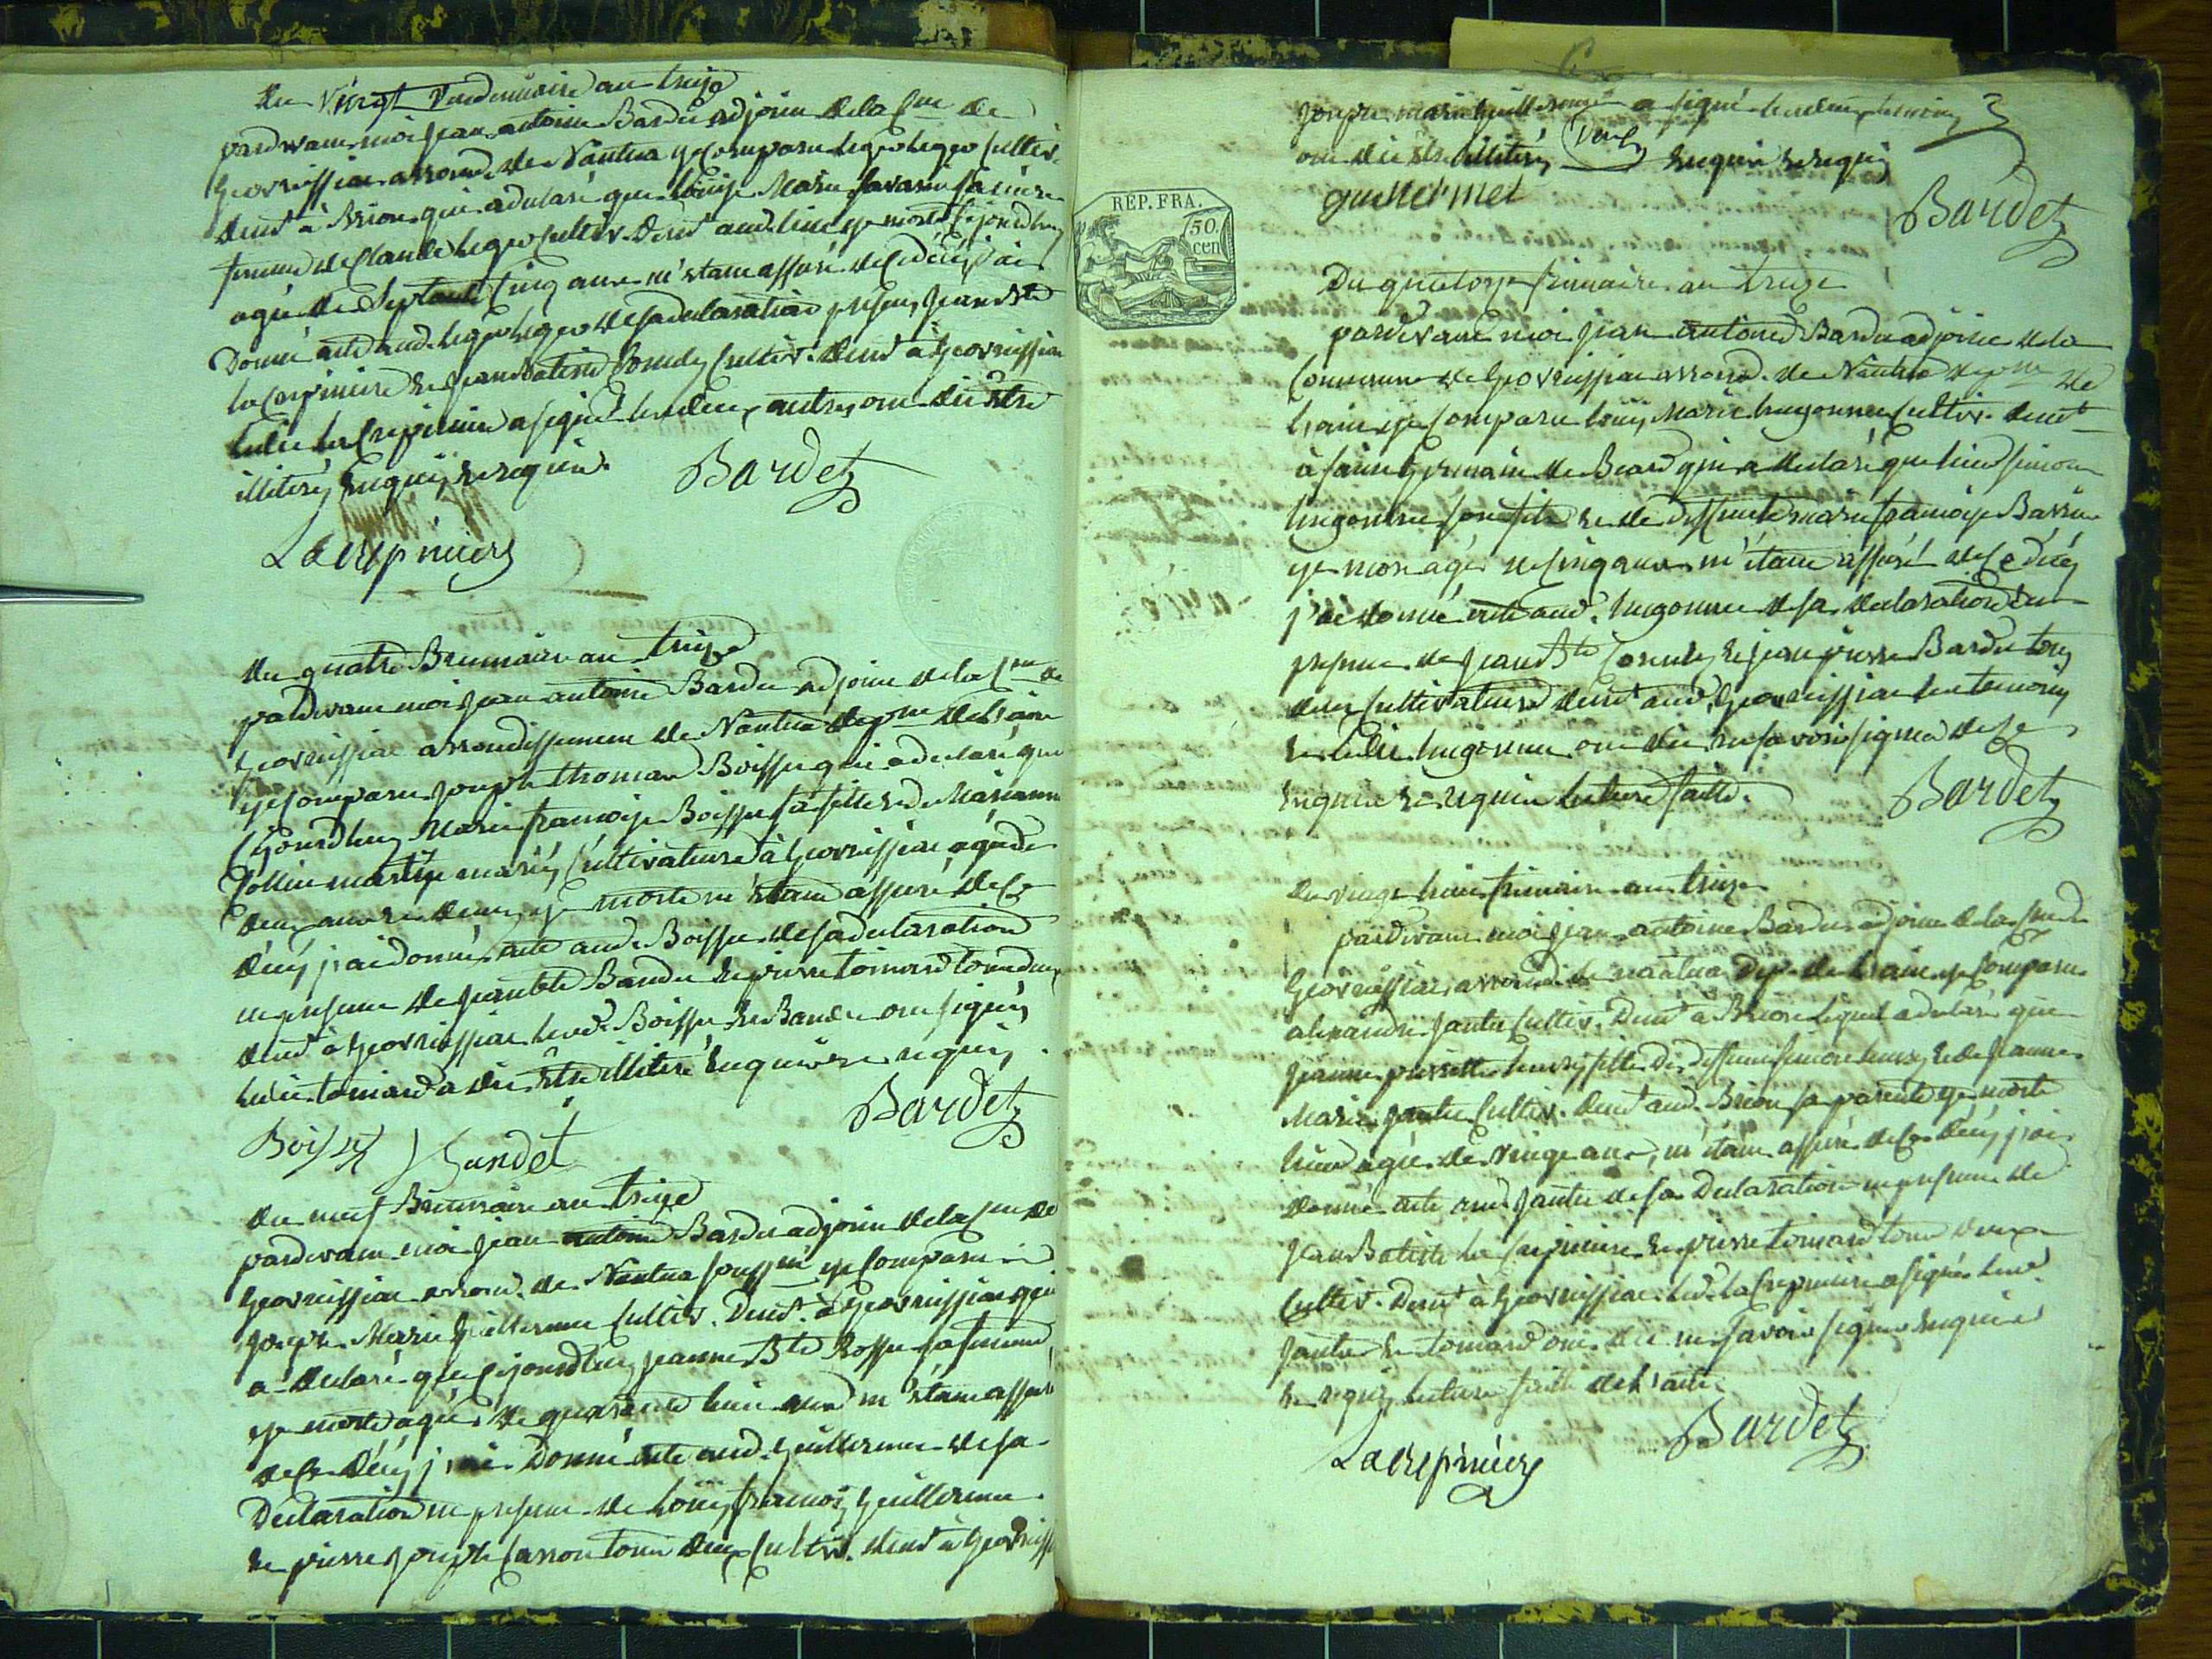 du vingt vendemiaire an treize
pardevant moi Jean antoine Bardet adjoint de la Cne de
Geovreissiac arrond. de Nantua est Comparu leger leger Cultiv.
demt à Brion qui a declaré que Louise Marie savarin sa mère
femme de Claude leger Cultiv. demt aud. lieu est morte Cejourdhuy
agée de septante Cinq ans m'étant assuré de ce décès j'ai
Donné acte aud. leger de sa declaration presens Jean Bte
la Crepiniere et Jean Batiste Comely Cultiv. demt à Geovreissiac
ledit la Crepiniere a signé les deux autres ont dit être
illiterés Enquis et requis.
Bardet
Lacrepiniere
du quatre Brumaire an treize
pardevant moi Jean antoine Bardet adjoint de la Cne de
Geovreissiac arrondissement de Nantua depme de l'ain
est Comparu Joseph thomas Boissy qui a declaré que
Cejourdhuy Marie francoise Boissy sa fille et de Marianne
martin mariés Cultivateurs à Geovreissiac agée de
deux ans et demy est morte m'étant assuré de Ce
décés j'ai donné acte aud. Boissy de sa declaration
en presence de Jean Bte Bandet et pierre tomard tous deux
demt à Geovreissiac led. Boissy et Bandet ont signés
ledit tomard a dit être illiteré Enquis et requis.
Bardet
Boissy Bandet
du neuf Brumaire an treize
pardevant moi Jean antoine Bardet adjoint de la Cne de
Geovreissiac arrond. de Nantua soussné est Comparu
Joseph Marie Guillermet Cultiv. Demt à Geovreissiac qui
a declaré que Cejourdhuy jeanne Bte Rosset sa femme
est morte agée de quarante huit ans m'étant assuré
de Ce décés j'ai Donné acte aud. Guillermet de sa
Declaration en presence de Louis francois Guillermet
et pierre Joseph Carron tous deux Cultiv. demt à Geovreissiac
Joseph marie Guillermet a signé les deux temoins
ont dit être illiterés Enquis et requis
3
guillermet
Bardet
REP. FRA.
50. cen
Du quatorze frimaire an treize
pardevant moi Jean antoine Bardet adjoint de la
Commune de Geovreissiac arrond. de Nantua depme de
l'ain est Comparu Louis Marie hugonnet Cultiv. demt
à saint Germain de Beard qui a declaré que hier simon
hugonnet son fils et de deffunte marie francoise Barrin
est mort agé de Cinq ans m'étant assuré de Ce décés
j'ai donné acte aud. hugonnet de sa declaration en
presence de Jean Bte Comely et Jean pierre Bardet tous
deux Cultivateurs demt aud. Geovreissiac les temoins
et ledit hugonnet ont dit ne savoir signer de ce
enquis et requis lecture faite.
Bardet
du vingt huit frimaire an treize
pardevant moi Jean antoine Bardet adjoint de la Cne de
Geovreissiac arrond. de nantua Dept. de l'ain est Comparu
alexandre Jantet Cultiv. Demt à Brion lequel a declaré que
Jeanne pierrette fille de deffunt simon et de Jeanne
Marie Jantet Cultiv. demt aud. Brion sa parente est morte
hier agée de vingt ans, m'étant assuré de Ce décés j'ai
donné acte aud. Jantet de sa Declaration en presence de
Jean Batiste la Crepiniere et pierre tomard tous deux
Cultiv. Demt à Geovreissiac led. la Crepiniere a signé led.
Jantet et tomard ont dit ne savoir signer enquis
et requis lecture faite de l'acte.
Lacrepiniere
Bardet